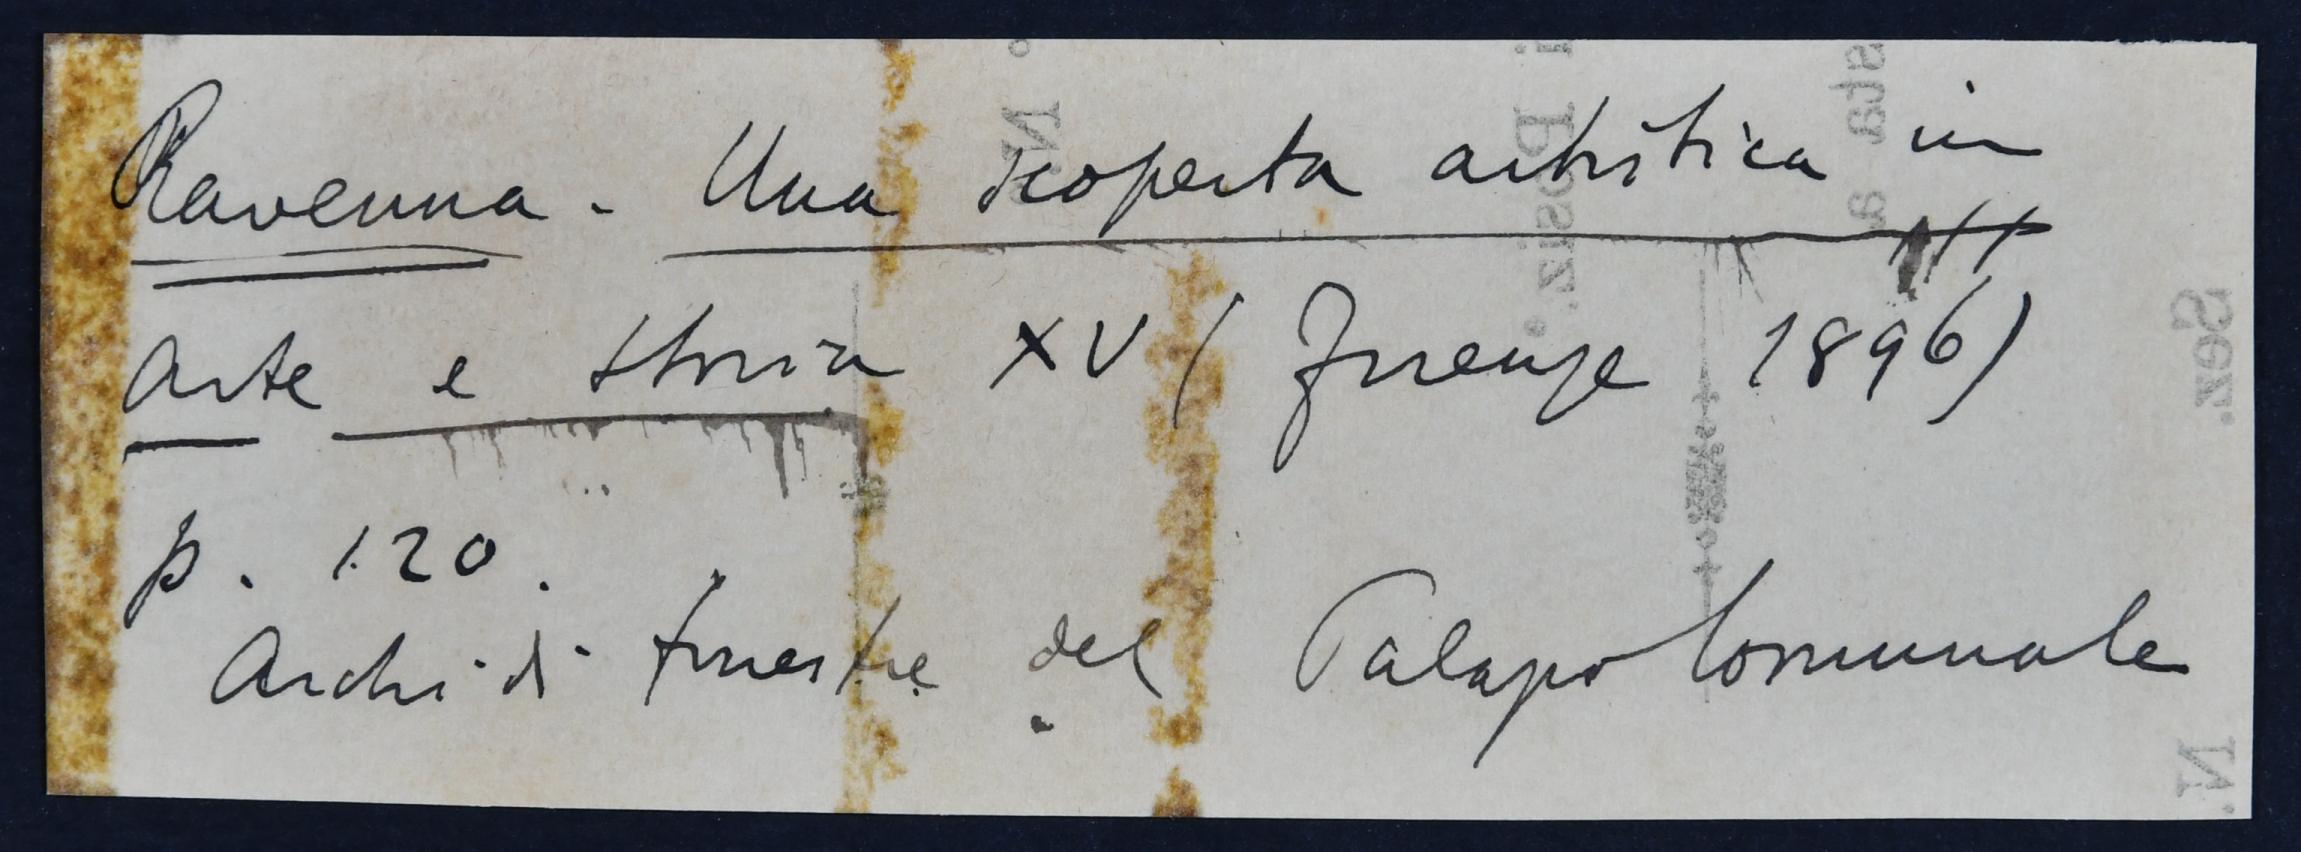 Ravenna. Una scoperta artistica in
Arte e Storia XV (Firenze 1896)
p. 120.
Archi di finestre del Palazzo Comunale